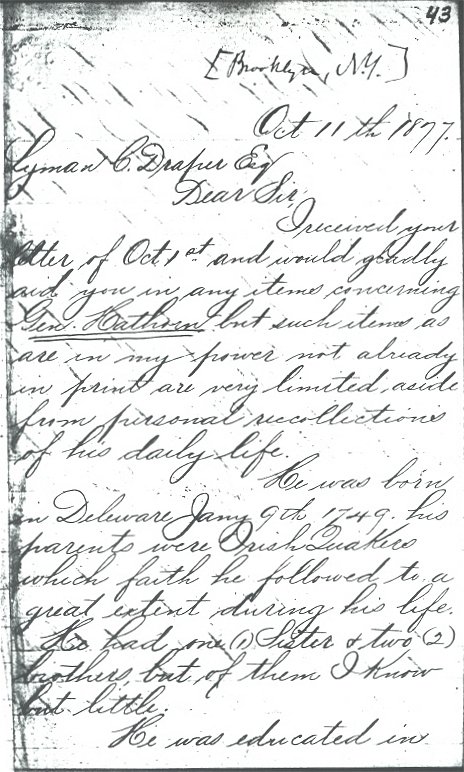 43
[Brooklyn, N.Y.]
Oct 11th 1877.
Lyman C. Draper Esq
Dear Sir,
I received your
letter of Oct. 1st and would gladly
aid you in any items concerning
Gen. Hathorn but such items as
are in my power not already
in print are very limited, aside
from personal recollections
of his daily life.
He was born
in Deleware Jany 9th 1749. his
parents were Irish Quakers
which faith he followed to a
great extent during his life.
He had one (1) Sister & two (2)
brothers, but of them I know
but little.
He was educated in